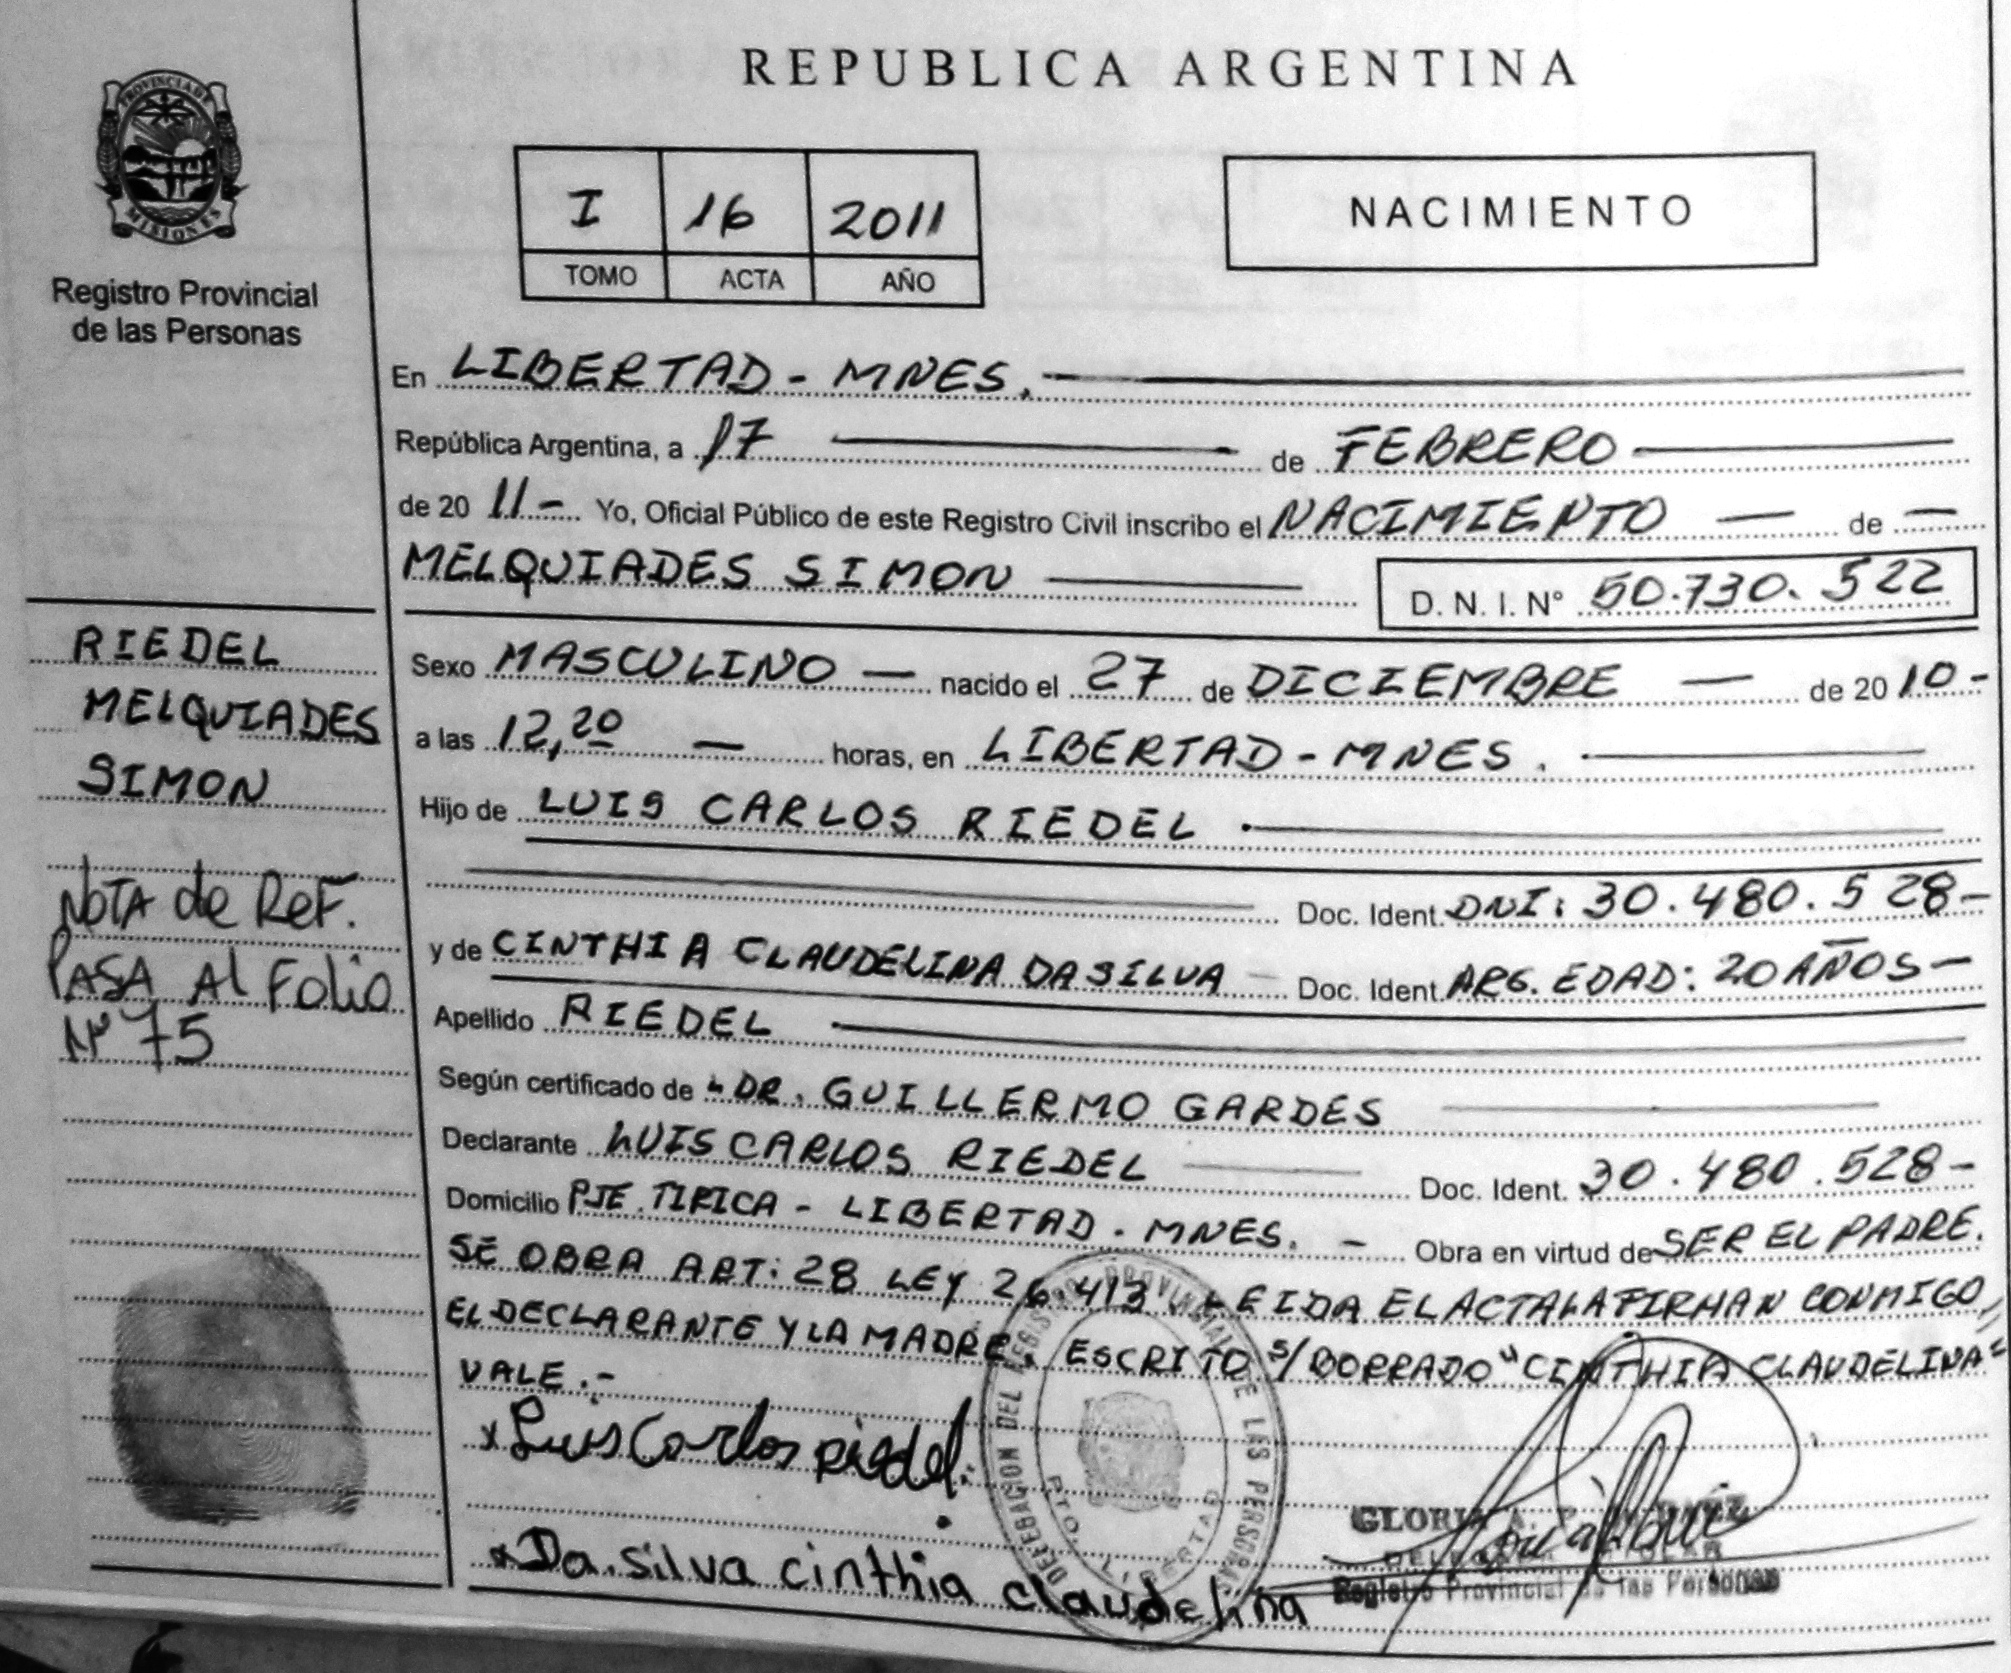 REPUBLICA ARGENTINA
PROVINCIA DE
MISIONES
Registro Provincial
de las Personas
I 16 2011
TOMO ACTA AÑO
NACIMIENTO
En LIBERTAD - MNES.
República Argentina, a 17 de FEBRERO
de 20 11 - Yo, Oficial Público de este Registro Civil inscribo el NACIMIENTO — de —
MELQUIADES SIMON
D. N. I. N° 50.730.522
RIEDEL
MELQUIADES
SIMON
NOTA de ReF.
PASA Al Folio
N° 75
Sexo MASCULINO — nacido el 27 de DICIEMBRE — de 20 10 -
a las 12,20 — horas, en LIBERTAD - MNES.
Hijo de LUIS CARLOS RIEDEL .
Doc. Ident. DNI: 30.480.528 -
y de CINTHIA CLAUDELINA DA SILVA - Doc. Ident. ARG. EDAD: 20 AÑOS -
Apellido RIEDEL
Según certificado de DR. GUILLERMO GARDES
Declarante LUIS CARLOS RIEDEL Doc. Ident. 30.480.528 -
Domicilio PJE. TIRICA - LIBERTAD - MNES. - Obra en virtud de SER EL PADRE.
SE OBRA ART: 28 LEY 26.413. LEIDA EL ACTA LA FIRMAN CONMIGO,
EL DECLARANTE Y LA MADRE. ESCRITO S/BORRADO "CINTHIA CLAUDELINA"
VALE.-
x Luis Carlos Riedel.
x Da. silva cinthia claudelina
DELEGACION DEL REGISTRO PROVINCIAL DE LAS PERSONAS
PTO. LIBERTAD
GLORIA A.
DELEGADA TITULAR
Registro Provincial de las Personas